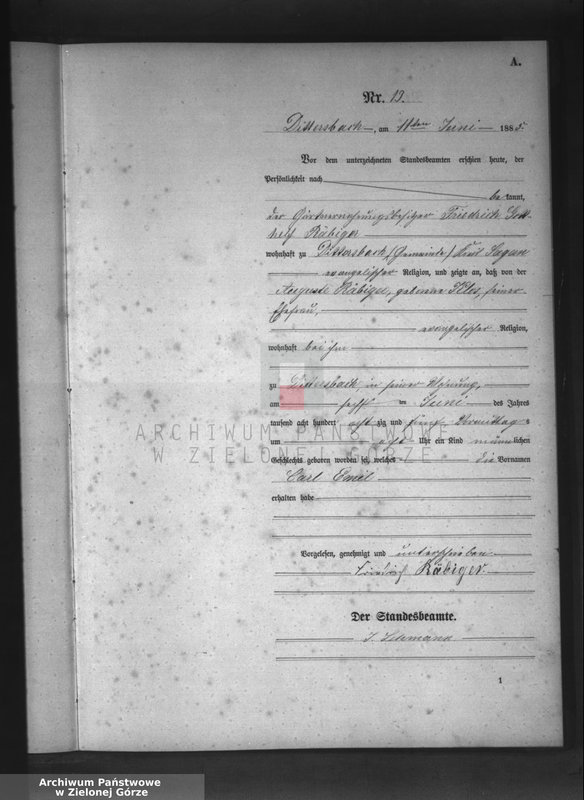 A.
Nr. 19.
Dittersbach, am 11ten Juni 1885.
Vor dem unterzeichneten Standesbeamten erschien heute, der
Persönlichkeit nach
be kannt,
der Gärtnernahrungsbesitzer Friedrich Gott-
helf Räbiger
wohnhaft zu Dittersbach (Gemeinde) Kreis Sagan
evangelischer Religion, und zeigte an, daß von der
Auguste Räbiger, geborene, seiner
Ehefrau,
evangelischer Religion,
wohnhaft bei ihm
zu Dittersbach, in seiner Wohnung,
am Juni des Jahres
tausend acht hundert acht zig und fünf Vormittag s
um acht Uhr ein Kind männ lichen
Geschlechts geboren worden sei, welches die Vornamen
Carl Emil
erhalten habe
Vorgelesen, genehmigt und unterschrieben
Friedrich Räbiger.
Der Standesbeamte.
1
ARCHIWUM PAŃSTWOWE
W ZIELONEJ GÓRZE
Archiwum Państwowe
w Zielonej Górze